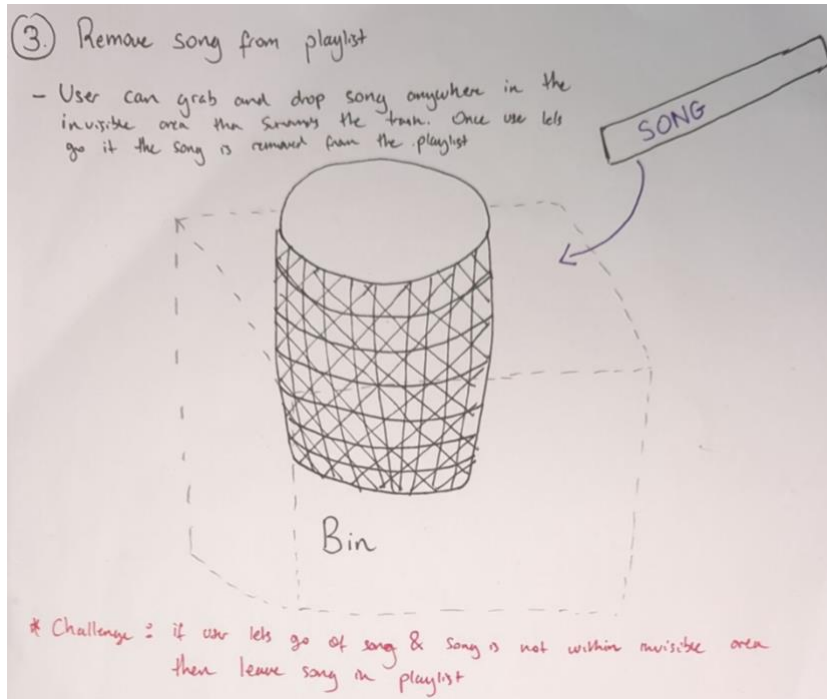 3. Remove song from playlist
- User can grab and drop song anywhere in the
invisible area tha surrounds the trash. Once use lets
go it the song is removed from the playlist
SONG
Bin
* Challenge : if user lets go of song & song is not within invisible area
then leave song in playlist